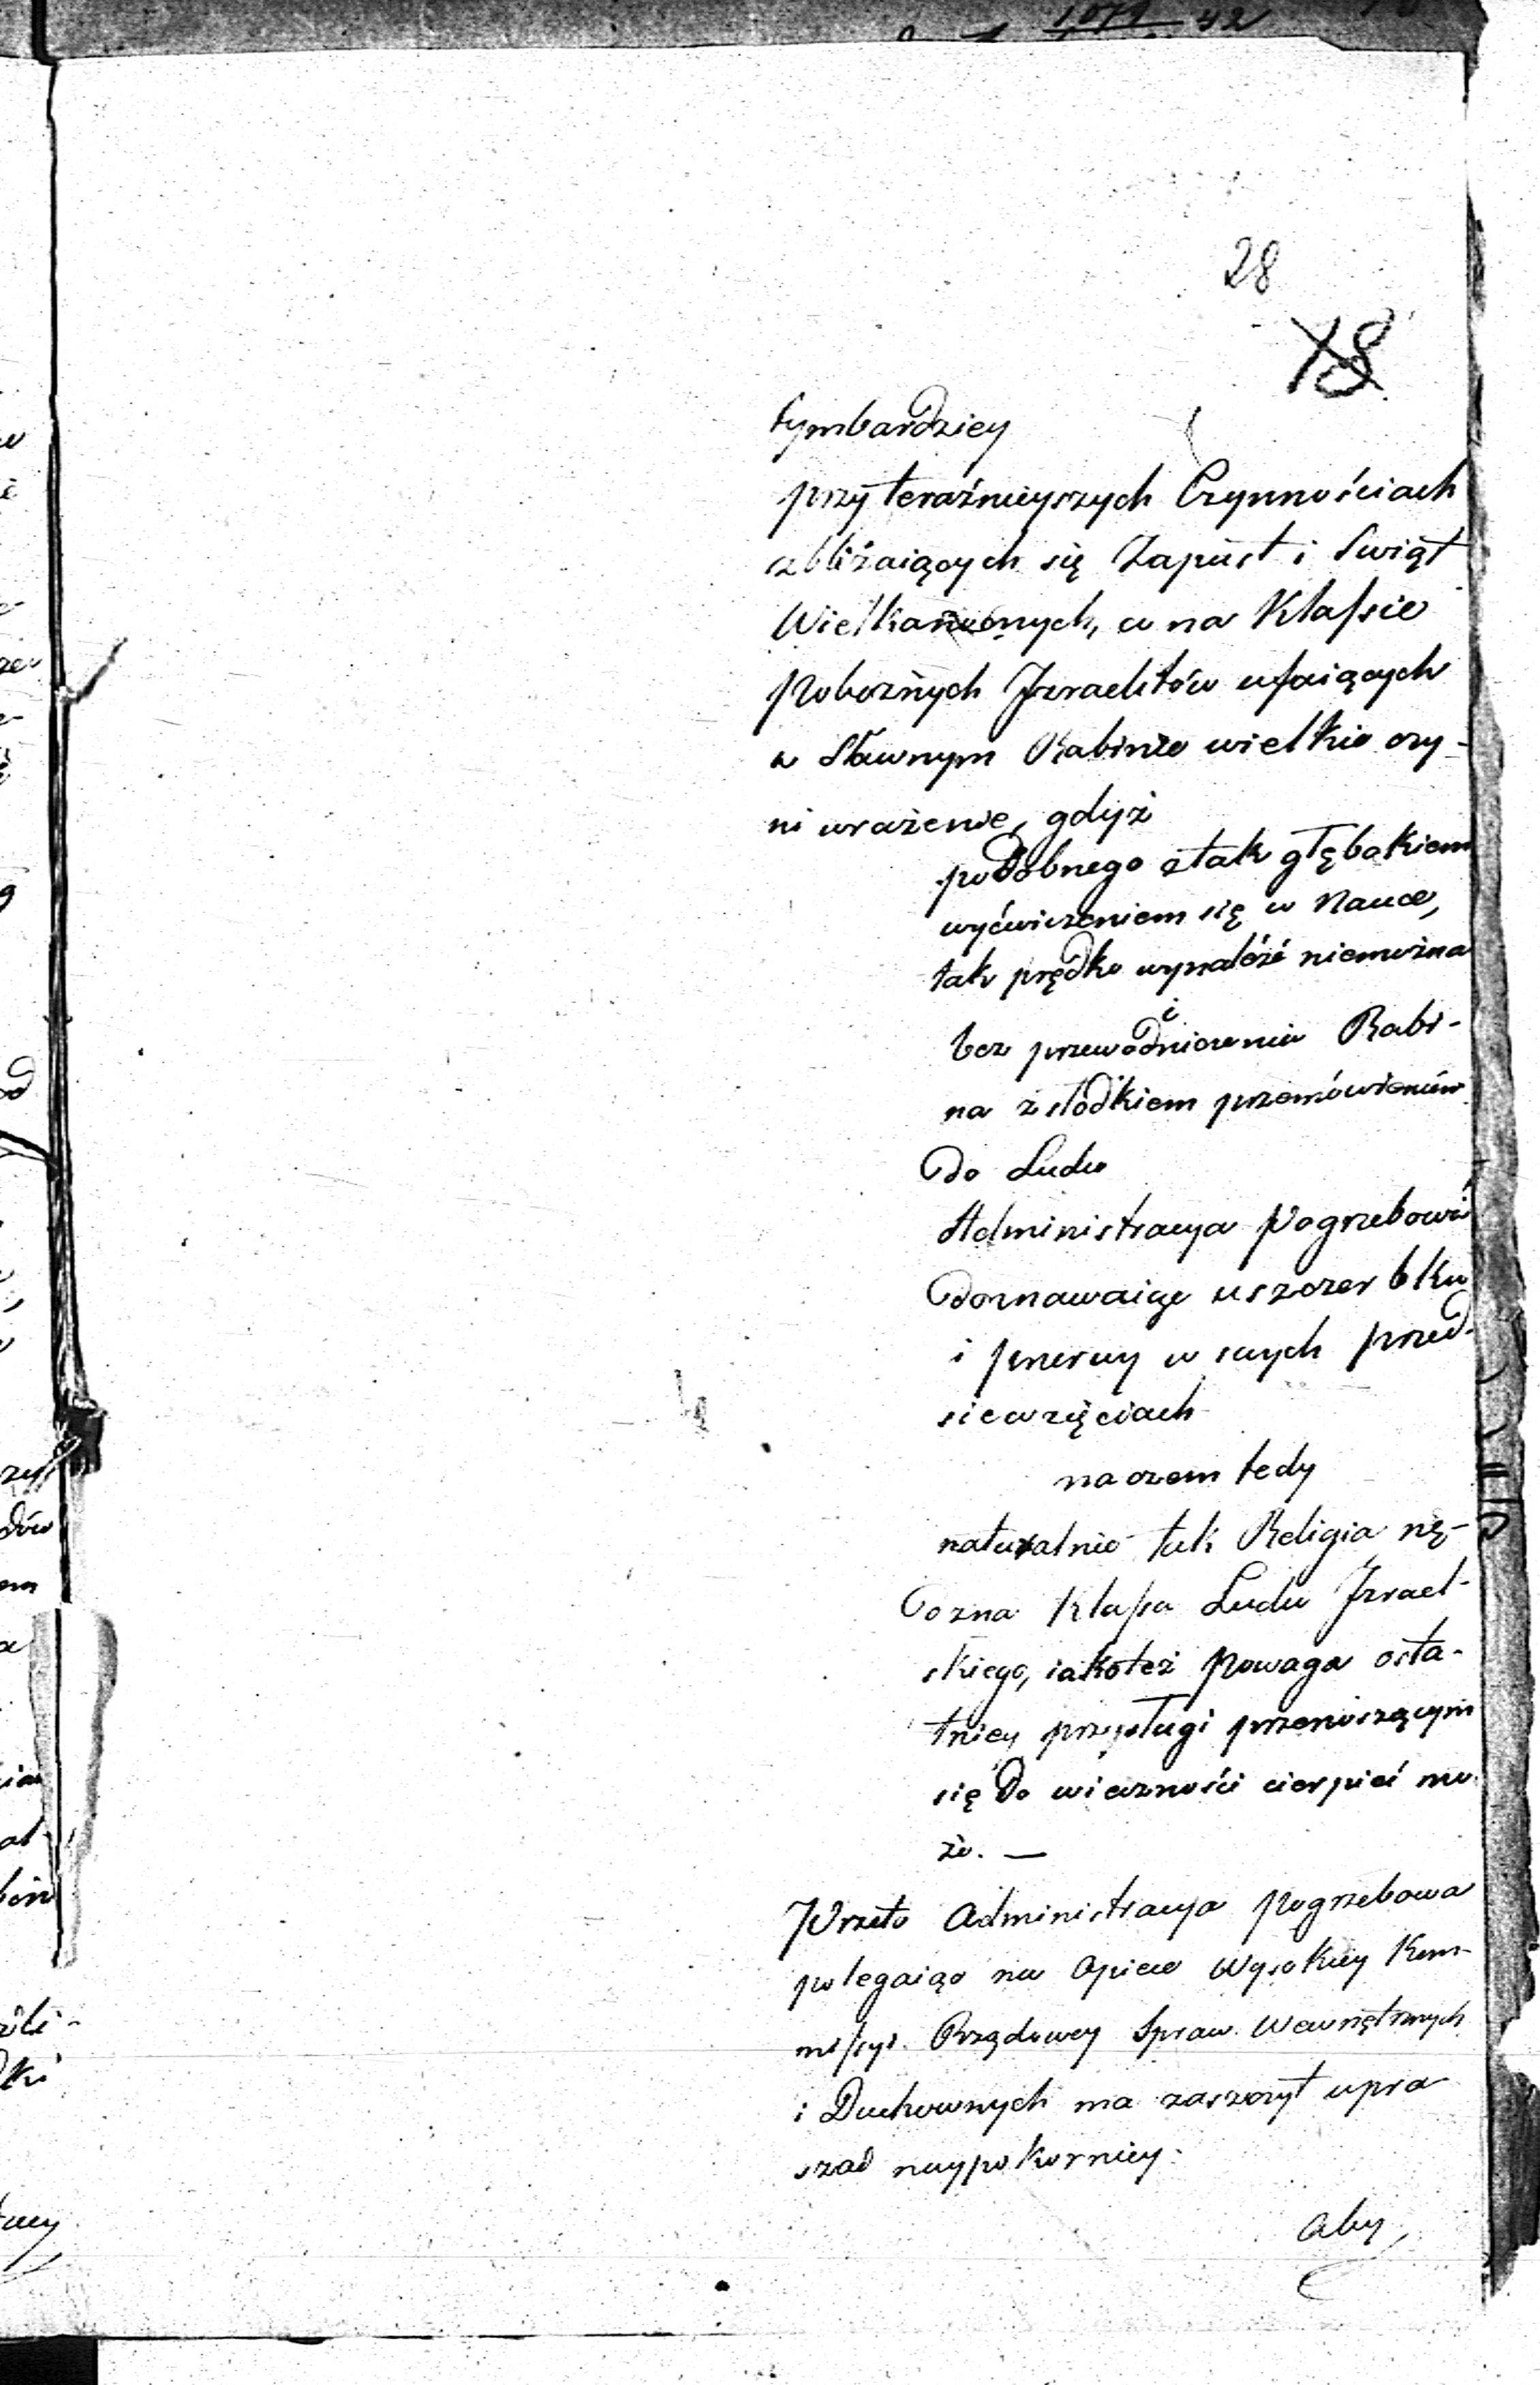 28
18
tymbardziey
przy teraźnieyszych Czynnościach
zbliżaiących się Zapust i Swiąt
Wielkanocnych, a na Klassie
Pobożnych Izraelitów ufaiących
w Sławnym Rabinie wielkie czy-
ni wrażenie, gdyż
podobnego z tak głębokiem
wyćwiczeniem się w Nauce,
tak prędko wynaleźć niemożna
i
bez przewodniczenia Rabi-
na z słodkiem przemówieniem
do Ludu
Administracya Pogrzebowa
doznawaiąc uszczerbku
i przerwy w swych przed-
siewzięciach
na czem tedy
naturalnie tak Religia nę-
dzna Klassa Ludu Izrael-
skiego, iakoteż Powaga osta-
tniey przysługi przenoszącym
się do wieczności cierpieć mo
że. —
Przeto Administracya Pogrzebowa
polegaiąc na Opiece Wysokiey Kom-
missyi Rządowey Spraw Wewnętrznych
i Duchownych ma zaszczyt upra
szać naypokorniey
aby